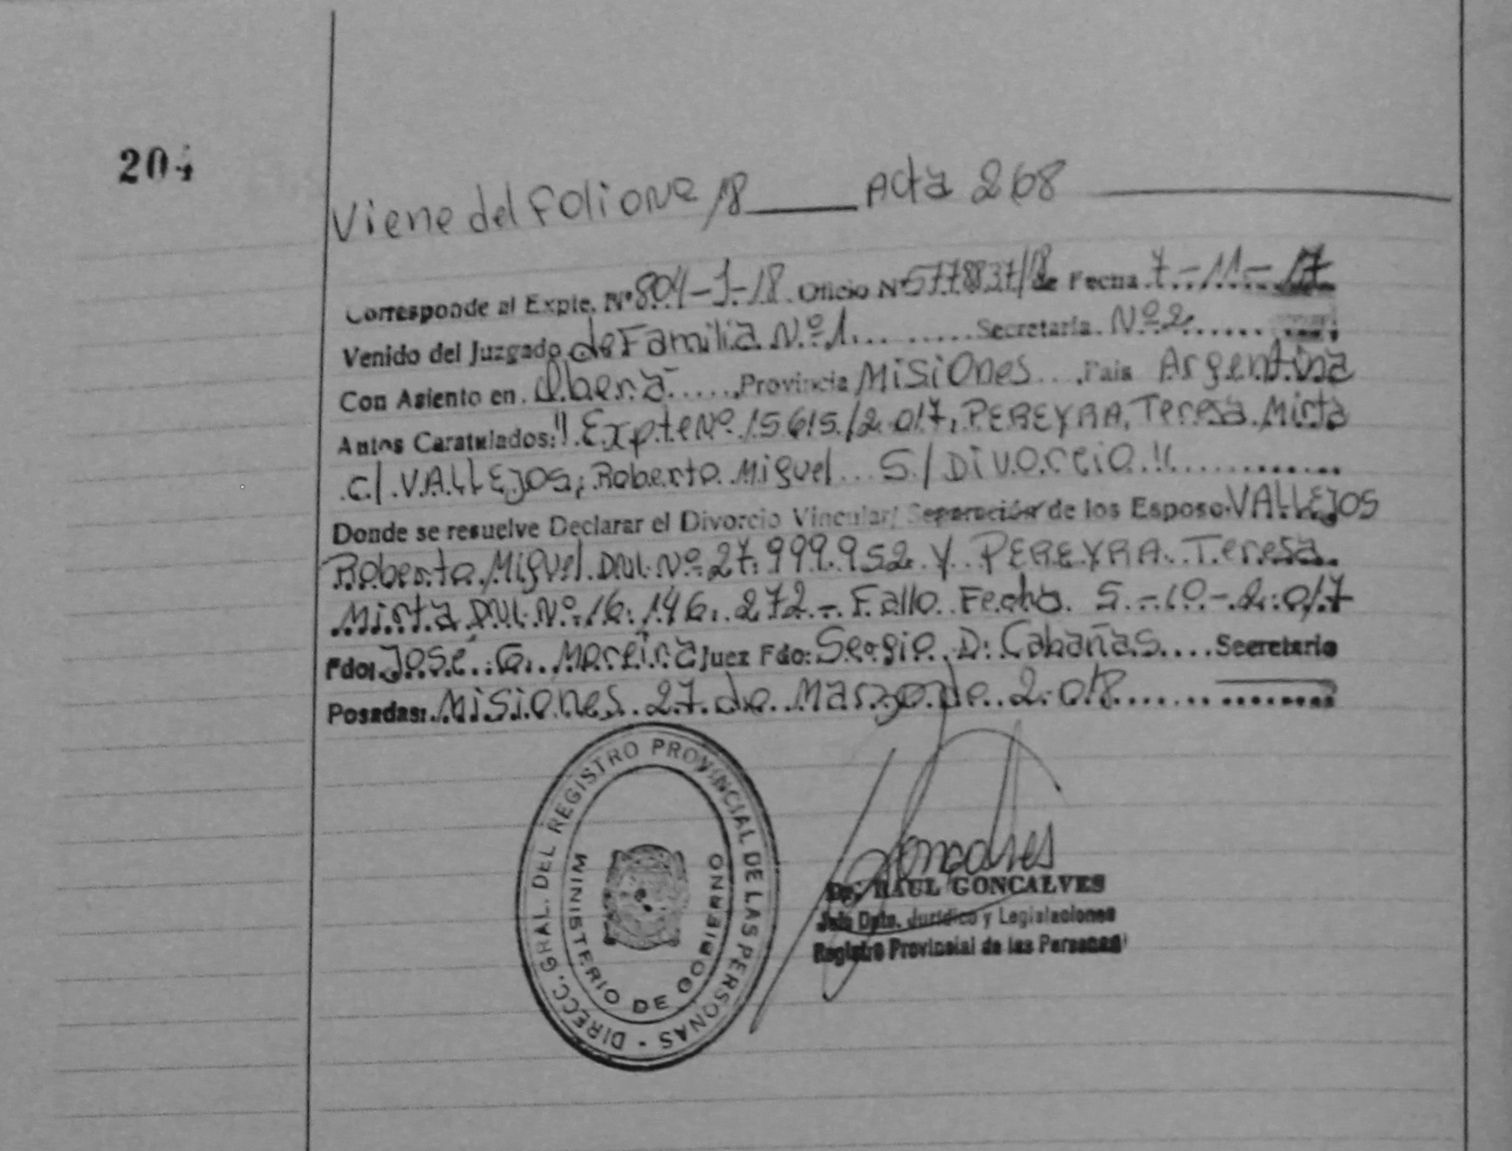 204
Viene del Folio Nº 18 ____ Acta 268
Corresponde al Expte. Nº 804-J-18. Oficio Nº 577837/18 de Fecha 7-11-17
Venido del Juzgado de Familia Nº 1............Secretaría. Nº 2......
Con Asiento en. Oberá.....,Provincia Misiones....Pais Argentina
Autos Caratulados:" Expte Nº 15615/2.017, PEREYRA, Teresa Mirta
c/ VALLEJOS, Roberto Miguel... S/ Divorcio"............
Donde se resuelve Declarar el Divorcio Vincular/ Separación de los Esposo. VALLEJOS
Roberto Miguel DNI. Nº 27.999.952 y PEREYRA Teresa
Mirta DNI. Nº 16.146.272.- Fallo Fecha 5.-10-2.017
Fdo: José G. Moreira Juez Fdo: Sergio D. Cabañas....Secretario
Posadas: Misiones 27 de Marzo de 2.018............
DIRECC. GRAL. DEL REGISTRO PROVINCIAL DE LAS PERSONAS -
MINISTERIO DE GOBIERNO
Goncalves
Dr. RAUL GONCALVES
Jefe Dpto. Jurídico y Legislaciones
Registro Provincial de las Personas